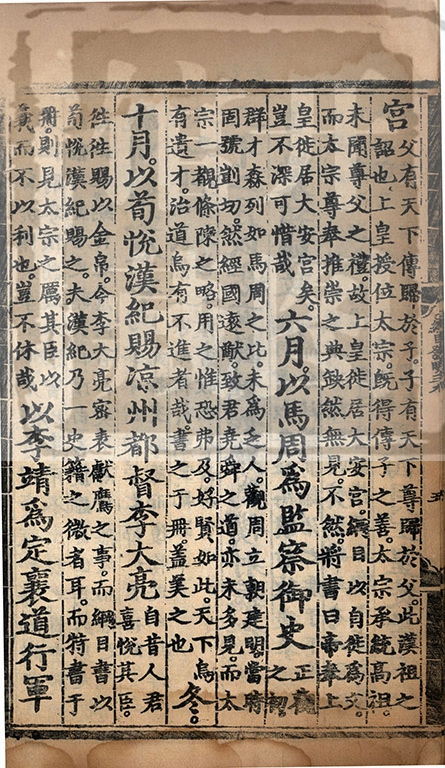 宮
父有天下傳歸於子。子有天下尊歸於父。此漢祖之
詔也。上皇授位太宗。旣得傳子之義。太宗承統高祖。
未聞尊父之禮。故上皇徙居大安宮。綱目以自徙爲文。
而太宗尊奉推崇之典缺然無見。不然。將書曰帝奉上
皇徙居大安宮矣。
豈不深可惜哉
六月。以馬周爲監察御史
正觀
之初
群才森列如馬周之比。未爲之人。觀周立朝建明。當時
固號剴切。然經國遠猷。致君堯舜之道。亦未多見。而太
宗一觀條陳之略。用之惟恐弗及。好賢如此。天下烏
有遺才。治道烏有不進者哉。書之于冊。蓋美之也
冬。
十月。以荀悅漢紀賜涼州都督李大亮
自昔人君
喜悅其臣。
往往賜以金帛。今李大亮密表獻鷹之事。而綱目書以
荀悅漢紀賜之。夫漢紀乃一史籍之微者耳。而特書于
冊。則見太宗之厲其臣以
義而不以利也。豈不休哉
以李靖爲定襄道行軍
五